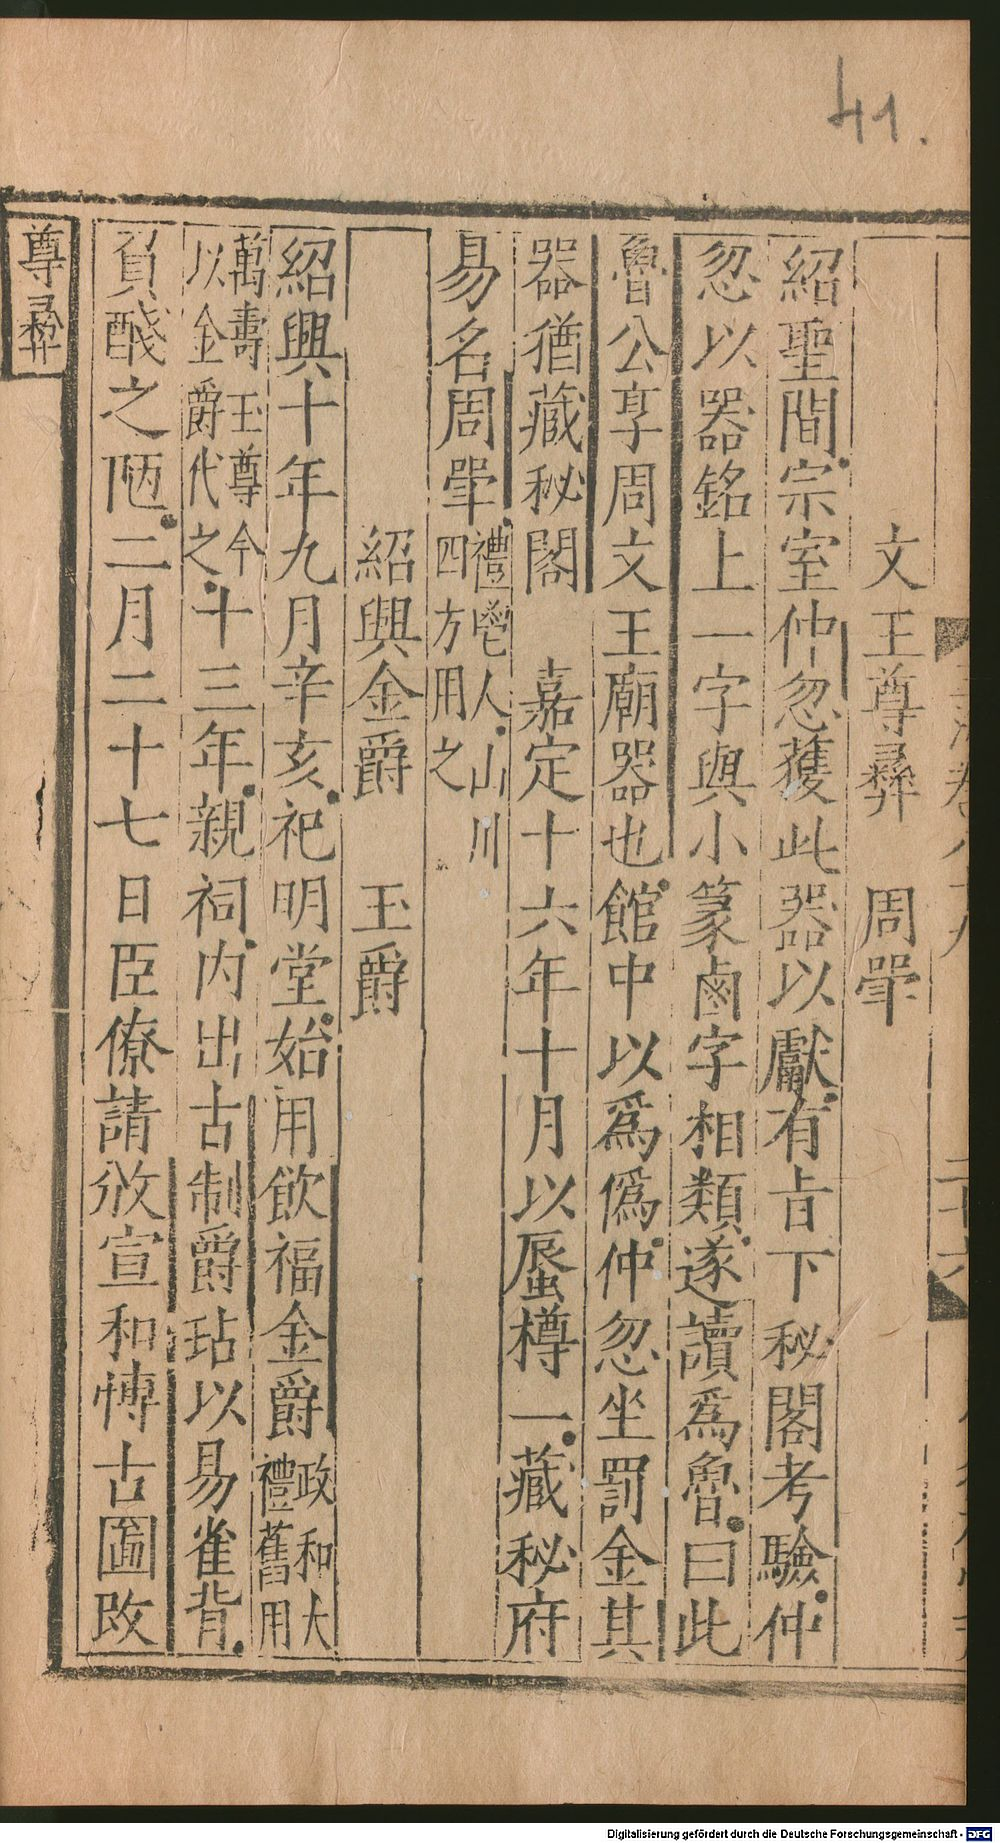 41.
文王尊彝　周斝
紹聖間宗室仲忽獲此器以獻有旨下秘閣考驗仲
忽以器銘上一字與小篆鹵字相類遂讀為魯曰此
魯公享周文王廟器也館中以為偽仲忽坐罰金其
器猶藏秘閣　嘉定十六年十月以蜃樽一藏秘府
易名周斝禮鬯人山川四方用之
紹興金爵　玉爵
紹興十年九月辛亥祀明堂始用飲福金爵政和大禮舊用
萬壽玉尊今以金爵代之十三年親祠内出古制爵坫以易雀背
負醆之陋二月二十七日臣僚請放宣和博古圖改
尊彝
Digitalisierung gefördert durch die Deutsche Forschungsgemeinschaft - DFG